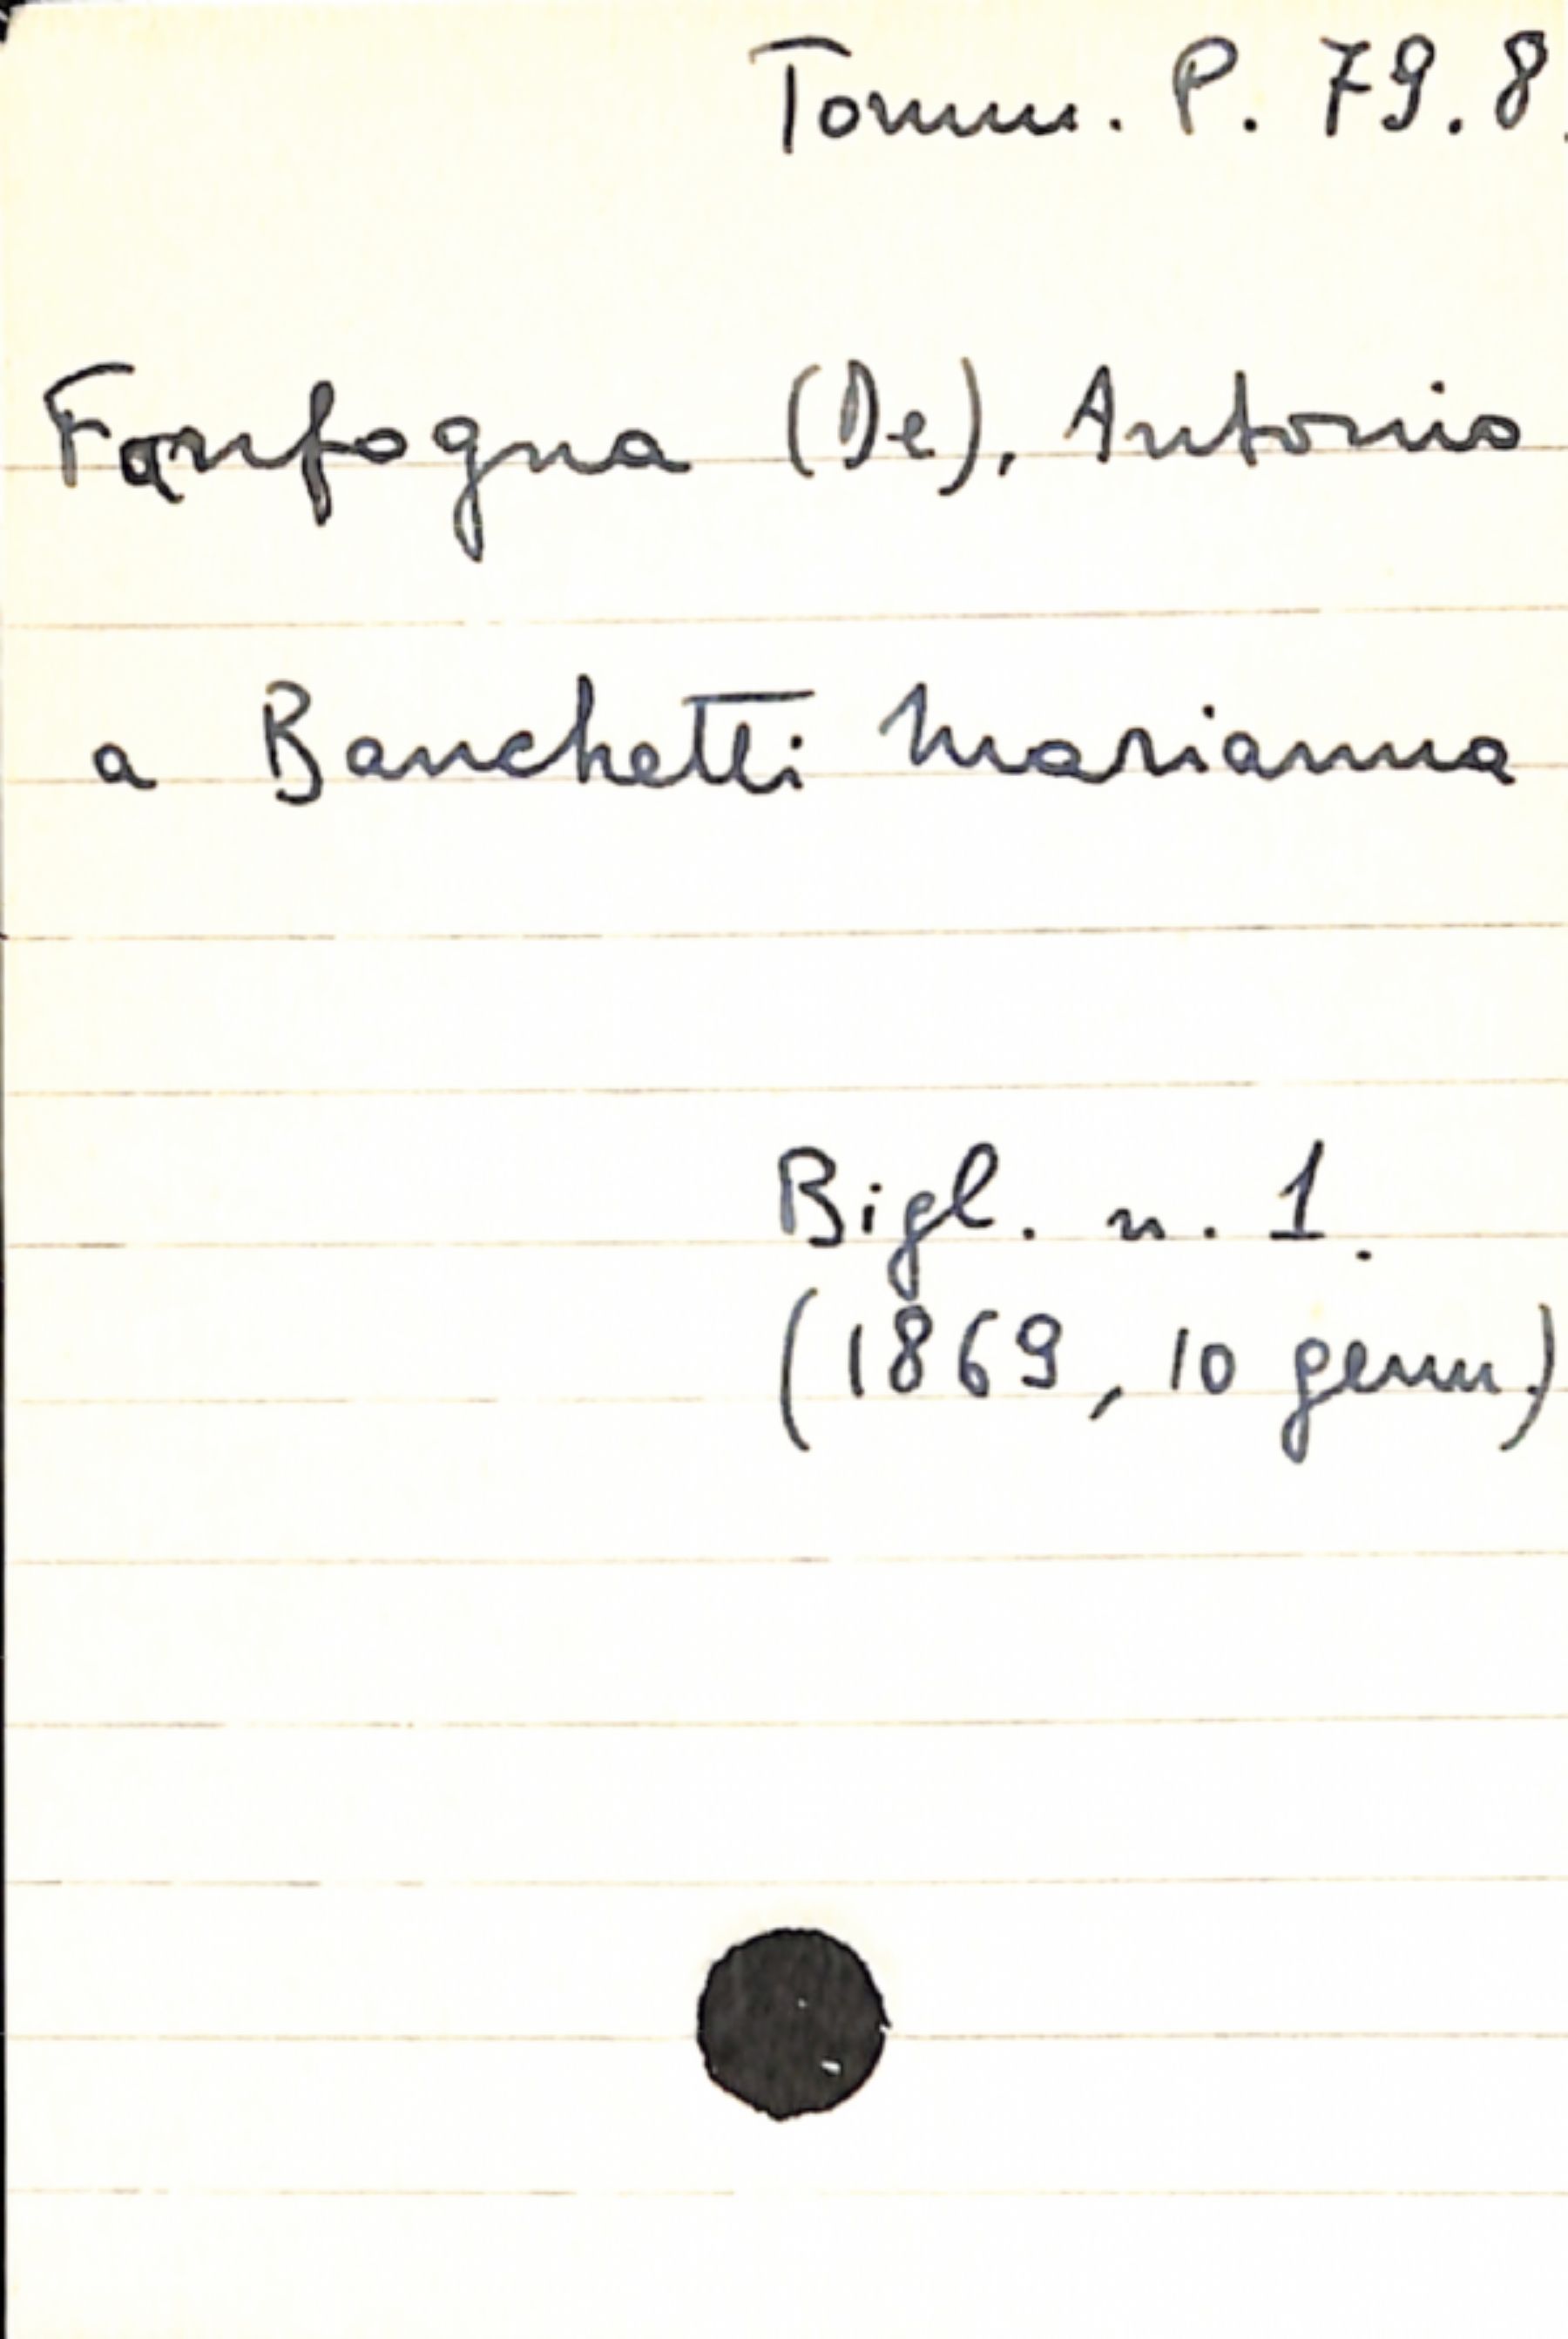 Tomm. P. 79. 8.
Fanfogna (De), Antonio
a Banchetti Marianna
Bigl. n. 1.
(1869, 10 genn.)